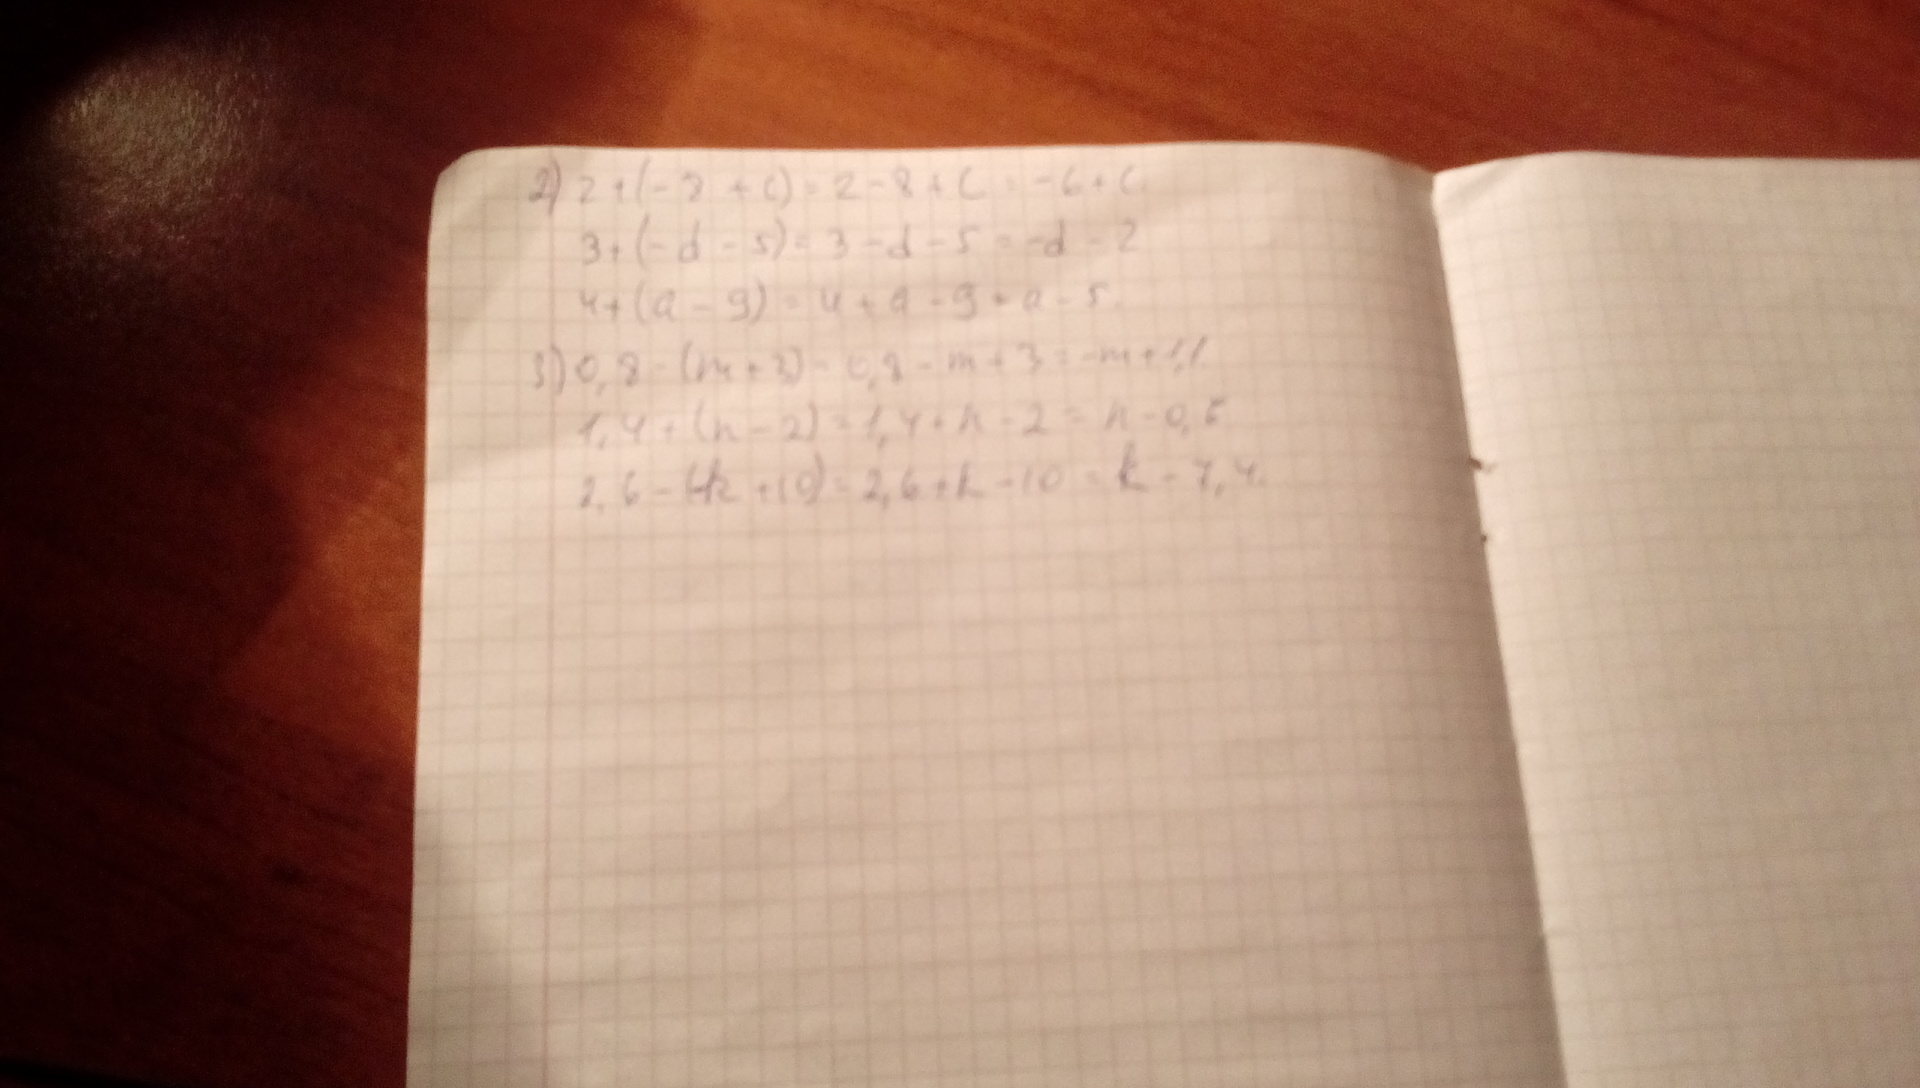 2) 2+(-8+c)=2-8+c=-6+c.
3+(-d-5)=3-d-5=-d-2
4+(a-9)=4+a-9=a-5.
3) 0,8-(m+3)=0,8-m+3=-m+1,1.
1,4+(n-2)=1,4+n-2=n-0,6
2,6-(-k+10)=2,6+k-10=k-7,4.